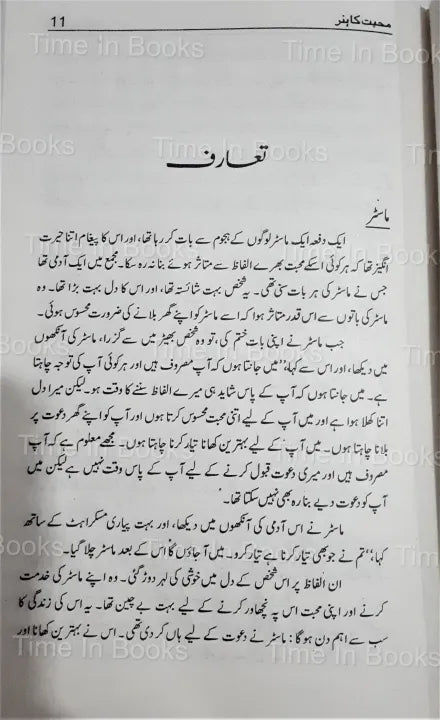 محبت کا ہنر 11
Time In Books
تعارف
ماسٹر
ایک دفعہ ایک ماسٹر لوگوں کے ہجوم سے بات کر رہا تھا، اور اس کا پیغام اتنا حیرت
انگیز تھا کہ ہر کوئی اسکے محبت بھرے الفاظ سے متاثر ہوئے بنا نہ رہ سکا۔ مجمع میں ایک آدمی تھا
جس نے ماسٹر کی ہر بات سنی تھی۔ یہ شخص بہت شائستہ تھا، اور اس کا دل بہت بڑا تھا۔ وہ
ماسٹر کی باتوں سے اس قدر متاثر ہوا کہ اسے ماسٹر کو اپنے گھر بلانے کی ضرورت محسوس ہوئی۔
جب ماسٹر نے اپنی بات ختم کی، تو وہ شخص بھیڑ میں سے گزرا، ماسٹر کی آنکھوں
میں دیکھا، اور اس سے کہا،‘‘میں جانتا ہوں کہ آپ مصروف ہیں اور ہر کوئی آپ کی توجہ چاہتا
ہے۔ میں جانتا ہوں کہ آپ کے پاس شاید ہی میرے الفاظ سننے کا وقت ہو۔ لیکن میرا دل
اتنا کھلا ہوا ہے اور میں آپ کے لیے اتنی محبت محسوس کرتا ہوں اور آپ کو اپنے گھر دعوت پر
بلانا چاہتا ہوں۔ میں آپ کے لیے بہترین کھانا تیار کرنا چاہتا ہوں۔ مجھے معلوم ہے کہ آپ
مصروف ہیں اور میری دعوت قبول کرنے کے لیے آپ کے پاس وقت نہیں ہے لیکن میں
آپ کو دعوت دیے بنا رہ بھی نہیں سکتا تھا۔’
ماسٹر نے اس آدمی کی آنکھوں میں دیکھا، اور بہت پیاری مسکراہٹ کے ساتھ
کہا،‘‘تم نے جو بھی تیار کرنا ہے تیار کرو۔ میں آ جاؤں گا’ اس کے بعد ماسٹر چلا گیا۔
ان الفاظ پر اس شخص کے دل میں خوشی کی لہر دوڑ گئی۔ وہ اپنے ماسٹر کی خدمت
کرنے اور اپنی محبت اس پہ نچھاور کرنے کے لیے بہت بے چین تھا۔ یہ اس کی زندگی کا
سب سے اہم دن ہو گا: ماسٹر نے دعوت کے لیے ہاں کر دی تھی۔ اس نے بہترین کھانا اور